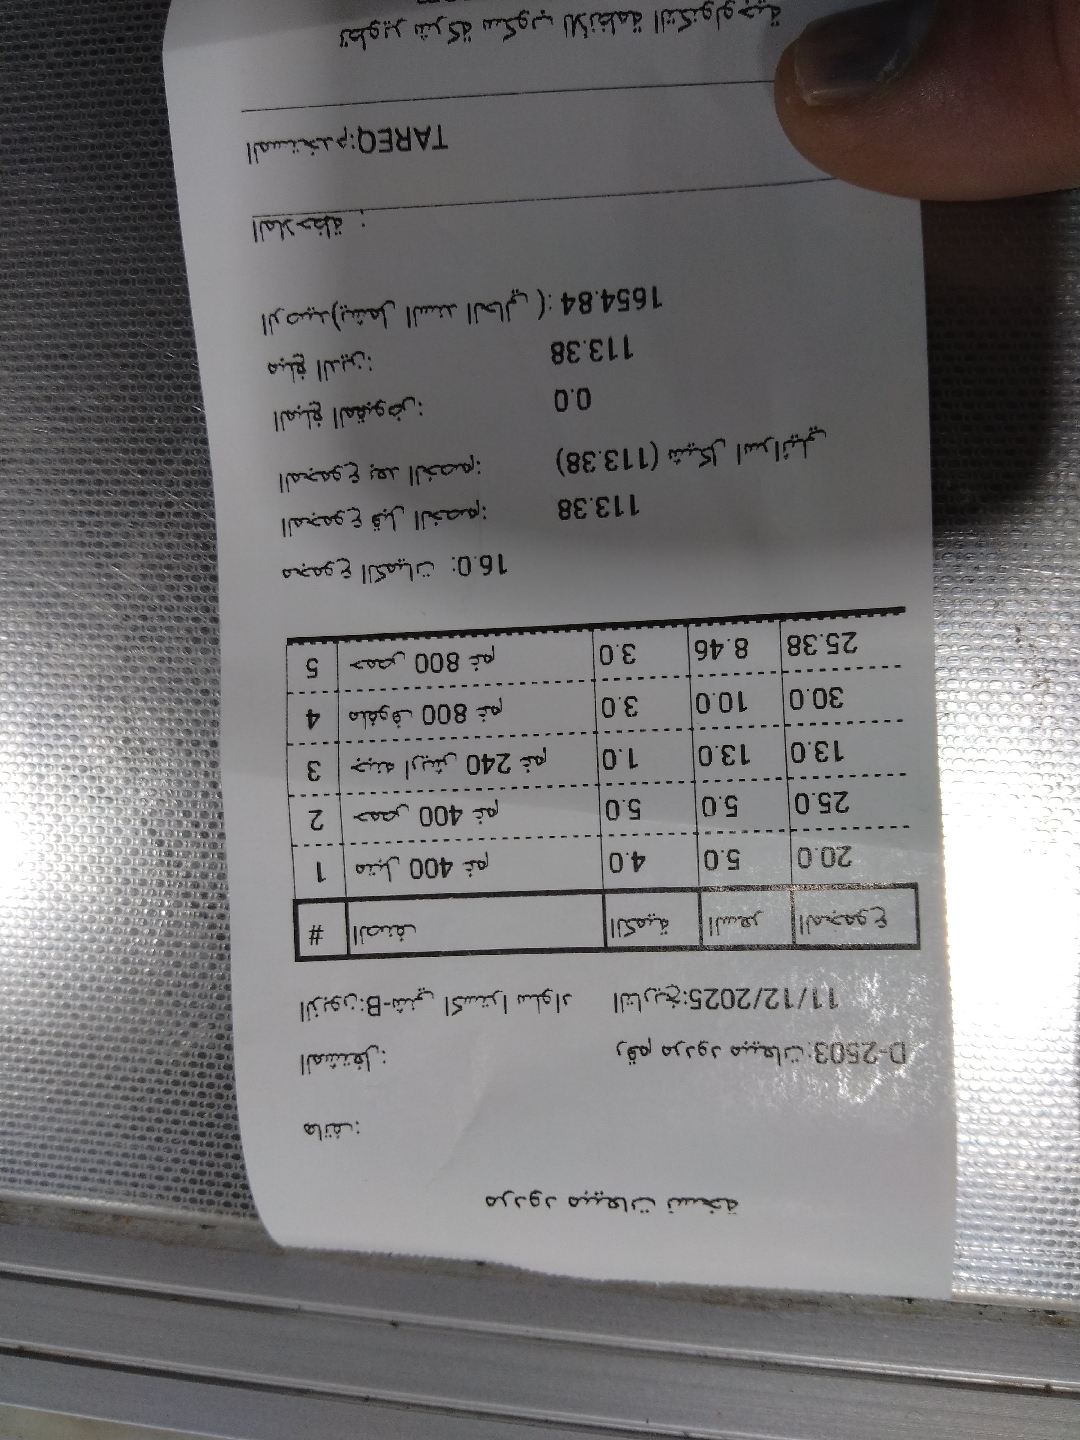 مردود مبيعات نسخة
هاتف:
رقم مردود مبيعات: D-2503 المشتغل:
التاريخ: 11/12/2025 الزبون: B-شني اكسترا سلواد
# الصنف الكمية السعر المجموع
1 متبل 400 غم 4.0 5.0 20.0
2 حمص 400 غم 5.0 5.0 25.0
3 جبنه اريش 240 غم 1.0 13.0 13.0
4 ملفوف 800 غم 3.0 10.0 30.0
5 حمص 800 غم 3.0 8.46 25.38
مجموع الكميات :16.0
المجموع قبل الخصم: 113.38
المجموع بعد الخصم: (113.38) شيكل اسرائيلي
المبلغ المقبوض: 0.0
مبلغ الدين: 113.38
الرصيد(يشمل السند الحالي ) :1654.84
الملاحظة :
المستخدم:TAREQ
تطوير شركة سكوب للأنظمة التكنولوجية